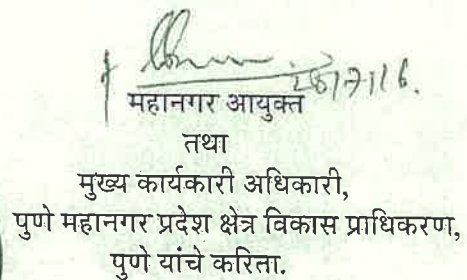 28/7/16.
महानगर आयुक्त
तथा
मुख्य कार्यकारी अधिकारी,
पुणे महानगर प्रदेश क्षेत्र विकास प्राधिकरण,
पुणे यांचे करिता.